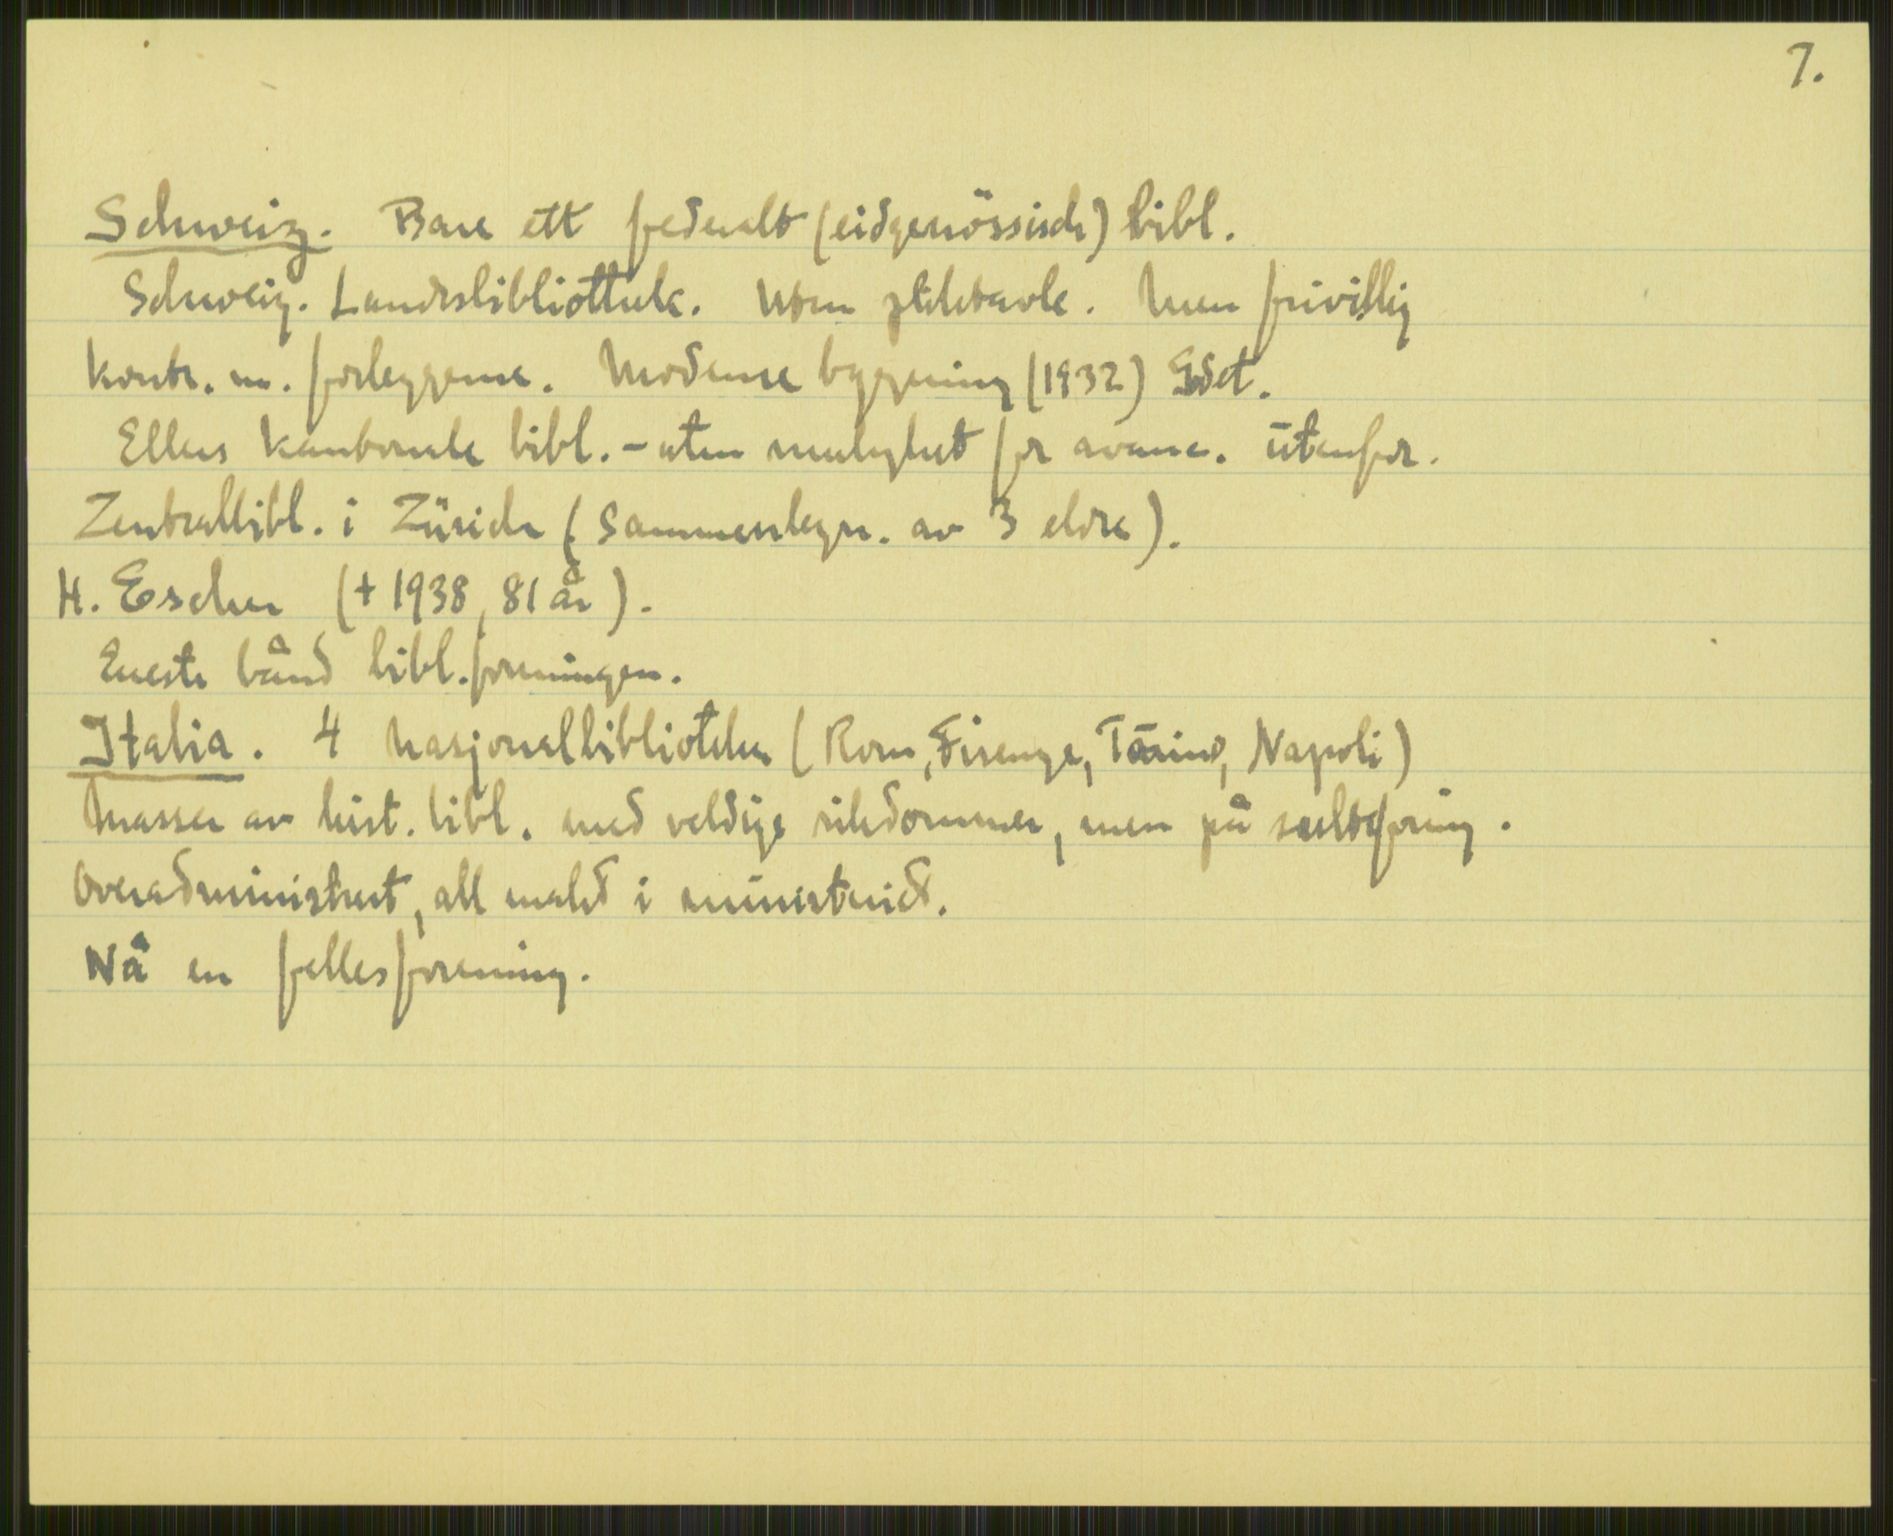 7.
Schweiz. Bare ett federalt (eidgenössisch) bibl.
Schweiz. Landesbibliothek. Uten pliktavle. Men frivillig
kontr. m. forleggerne. Moderne bygning (1932) Godet.
Ellers kantonale bibl. - uten mulighet for avanc. utenfor.
Zentralbibl. i Zürich (Sammenlegn. av 3 eldre).
H. Escher (+ 1938, 81 år).
Eneste bånd bibl.foreningen.
Italia. 4 nasjonalbiblioteker (Rom, Firenze, Torino, Napoli)
Masser av hist. bibl. med veldige rikdommer, men på sultefôring.
Overadministrert, all makt i ministeriet.
Nå en fellesforening.